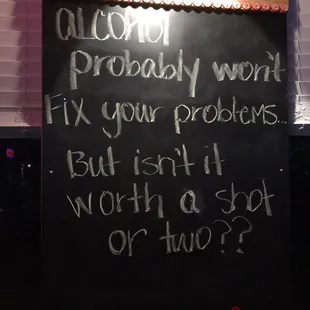 ALCOHOL
probably won't
Fix your problems...
But isn't it
worth a shot
or two??